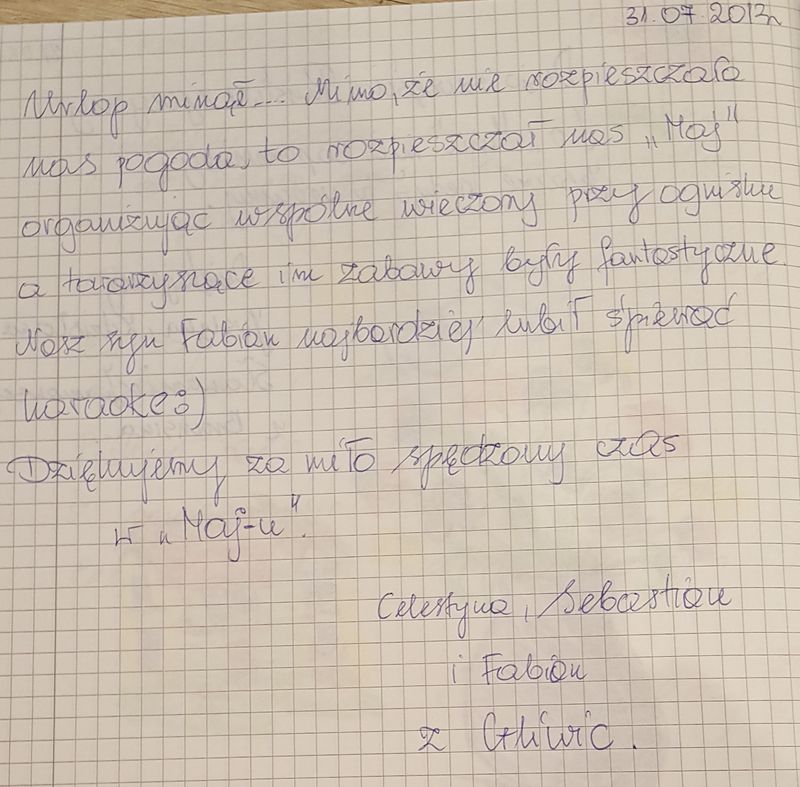 31.07.2013r
Urlop minął... Mimo, że nie rozpieszczała
nas pogoda, to rozpieszczał nas „Maj"
organizując wspólne wieczory przy ognisku
a towarzyszące im zabawy były fantastyczne.
Nasz syn Fabian najbardziej lubił śpiewać
karaoke:)
Dziękujemy za miło spędzony czas
w „Maj-u".
Celestyna, Sebastian
i Fabian
z Gliwic.